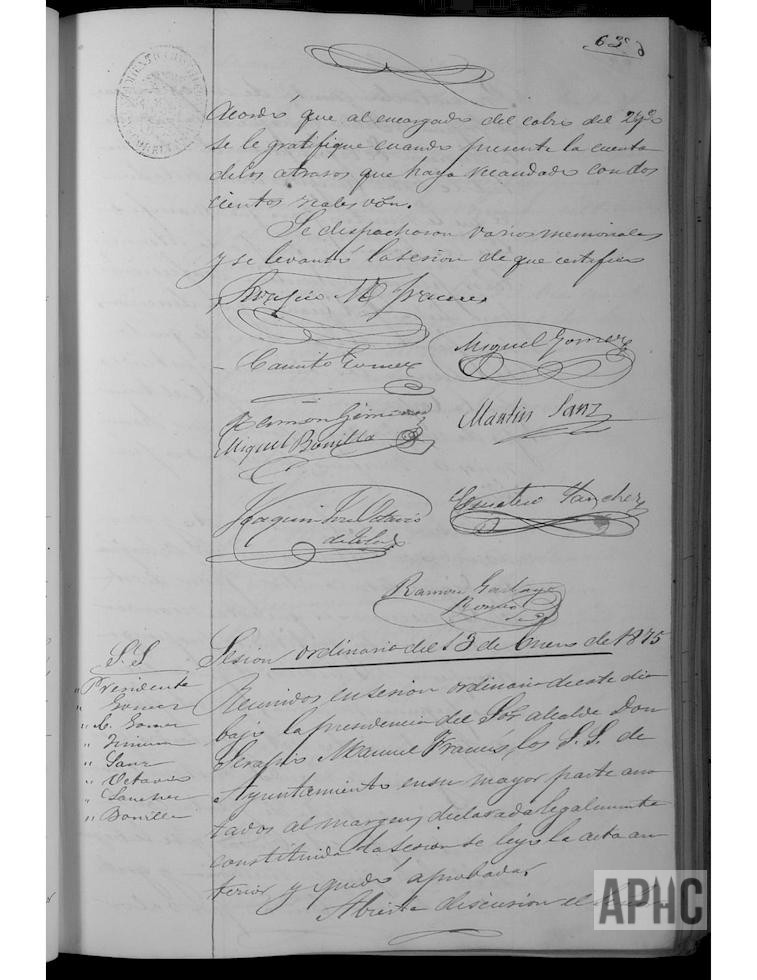 63
acordó que al encargado del cobro del
se le gratifique cuando presente la cuenta
delos atrasos que haya recaudado condos
cientos reales von.
Se despacharon varios memoriales
y se levantó lasesion de que certifico
Serafio M
Camilo Gomez
Miguel Gomez
Ramon
Martin Sanz
Miguel Bonilla
Joaquin Octavio
de Toledo
Sanchez
Ramon
Roman
Sesion ordinaria del 13 de Enero de 1875
S.S
" Presidente
" Gomez
" C. Gomez
" Sanz
" Octavio
" Sanchez
" Bonilla
Reunidos ensesion ordinaria deeste dia
bajo la presidencia del Sor alcalde Don
Serafio Manuel Francés, los S.S. de
Ayuntamiento ensu mayor parte ano
tados al margen, declarada legalmente
constituida la sesion se leyó la acta an
terior y quedó aprobada.
Abierta discusion el
APHC